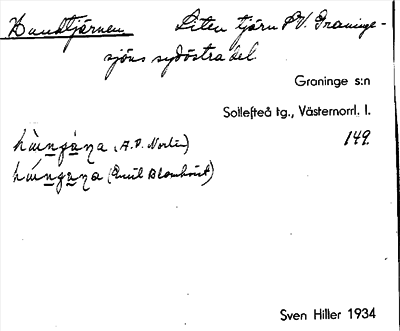 Hundtjärnen Liten tjärn SV. Graninge-
sjöns sydöstra del
Graninge s:n
Sollefteå tg., Västernorrl. l.
149.
(A. P. Norlin)
(Emil Blomkvist)
Sven Hiller 1934